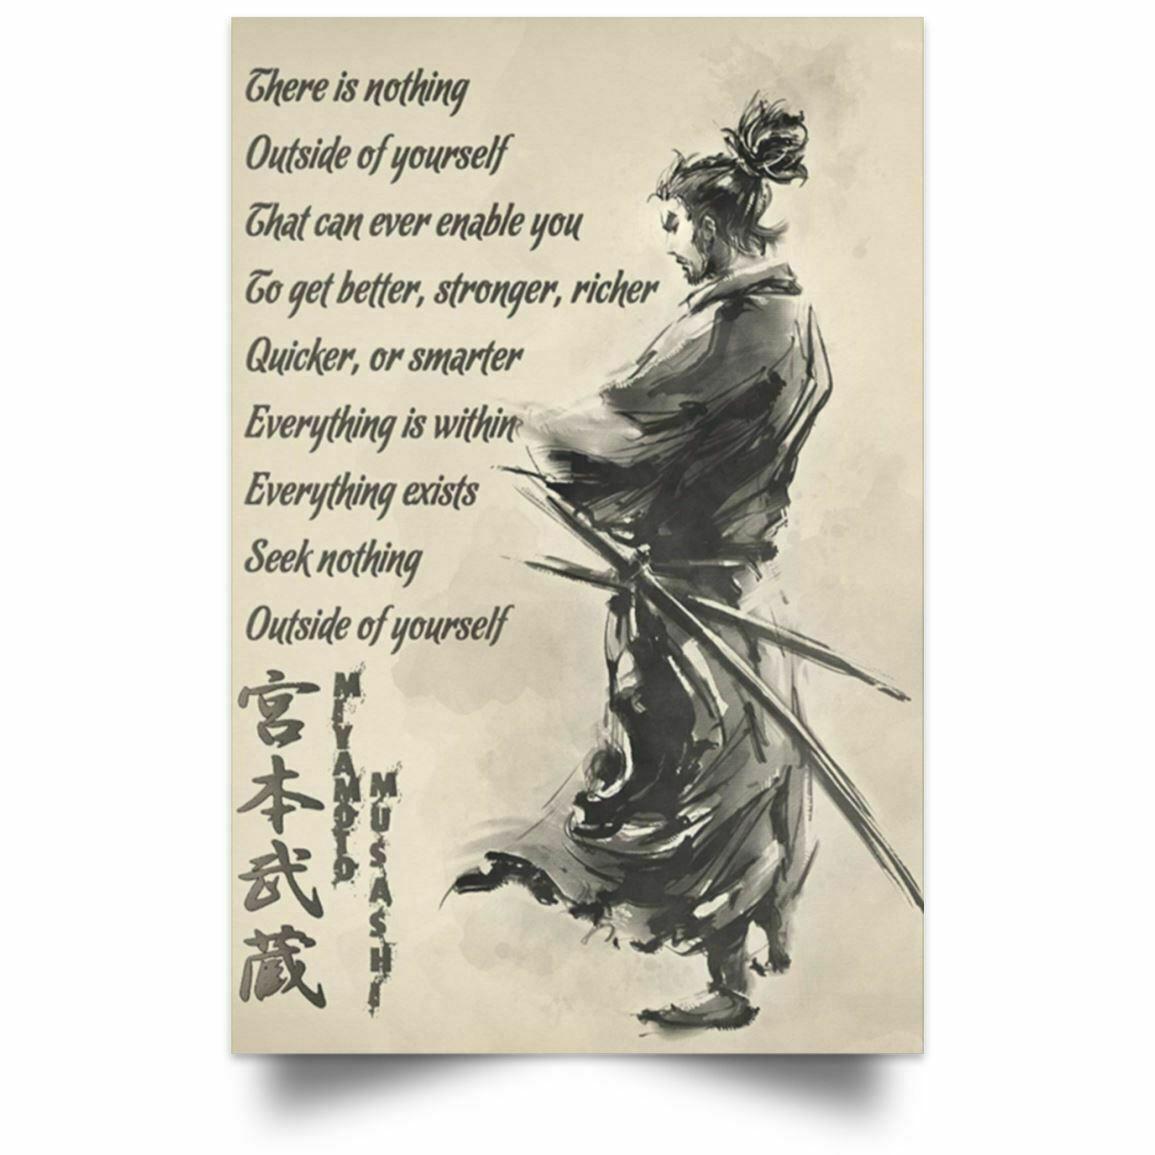 There is nothing
Outside of yourself
That can ever enable you
To get better, stronger, richer
Quicker, or smarter
Everything is within
Everything exists
Seek nothing
Outside of yourself
宮本武蔵
MIYAMOTO
MUSASHI